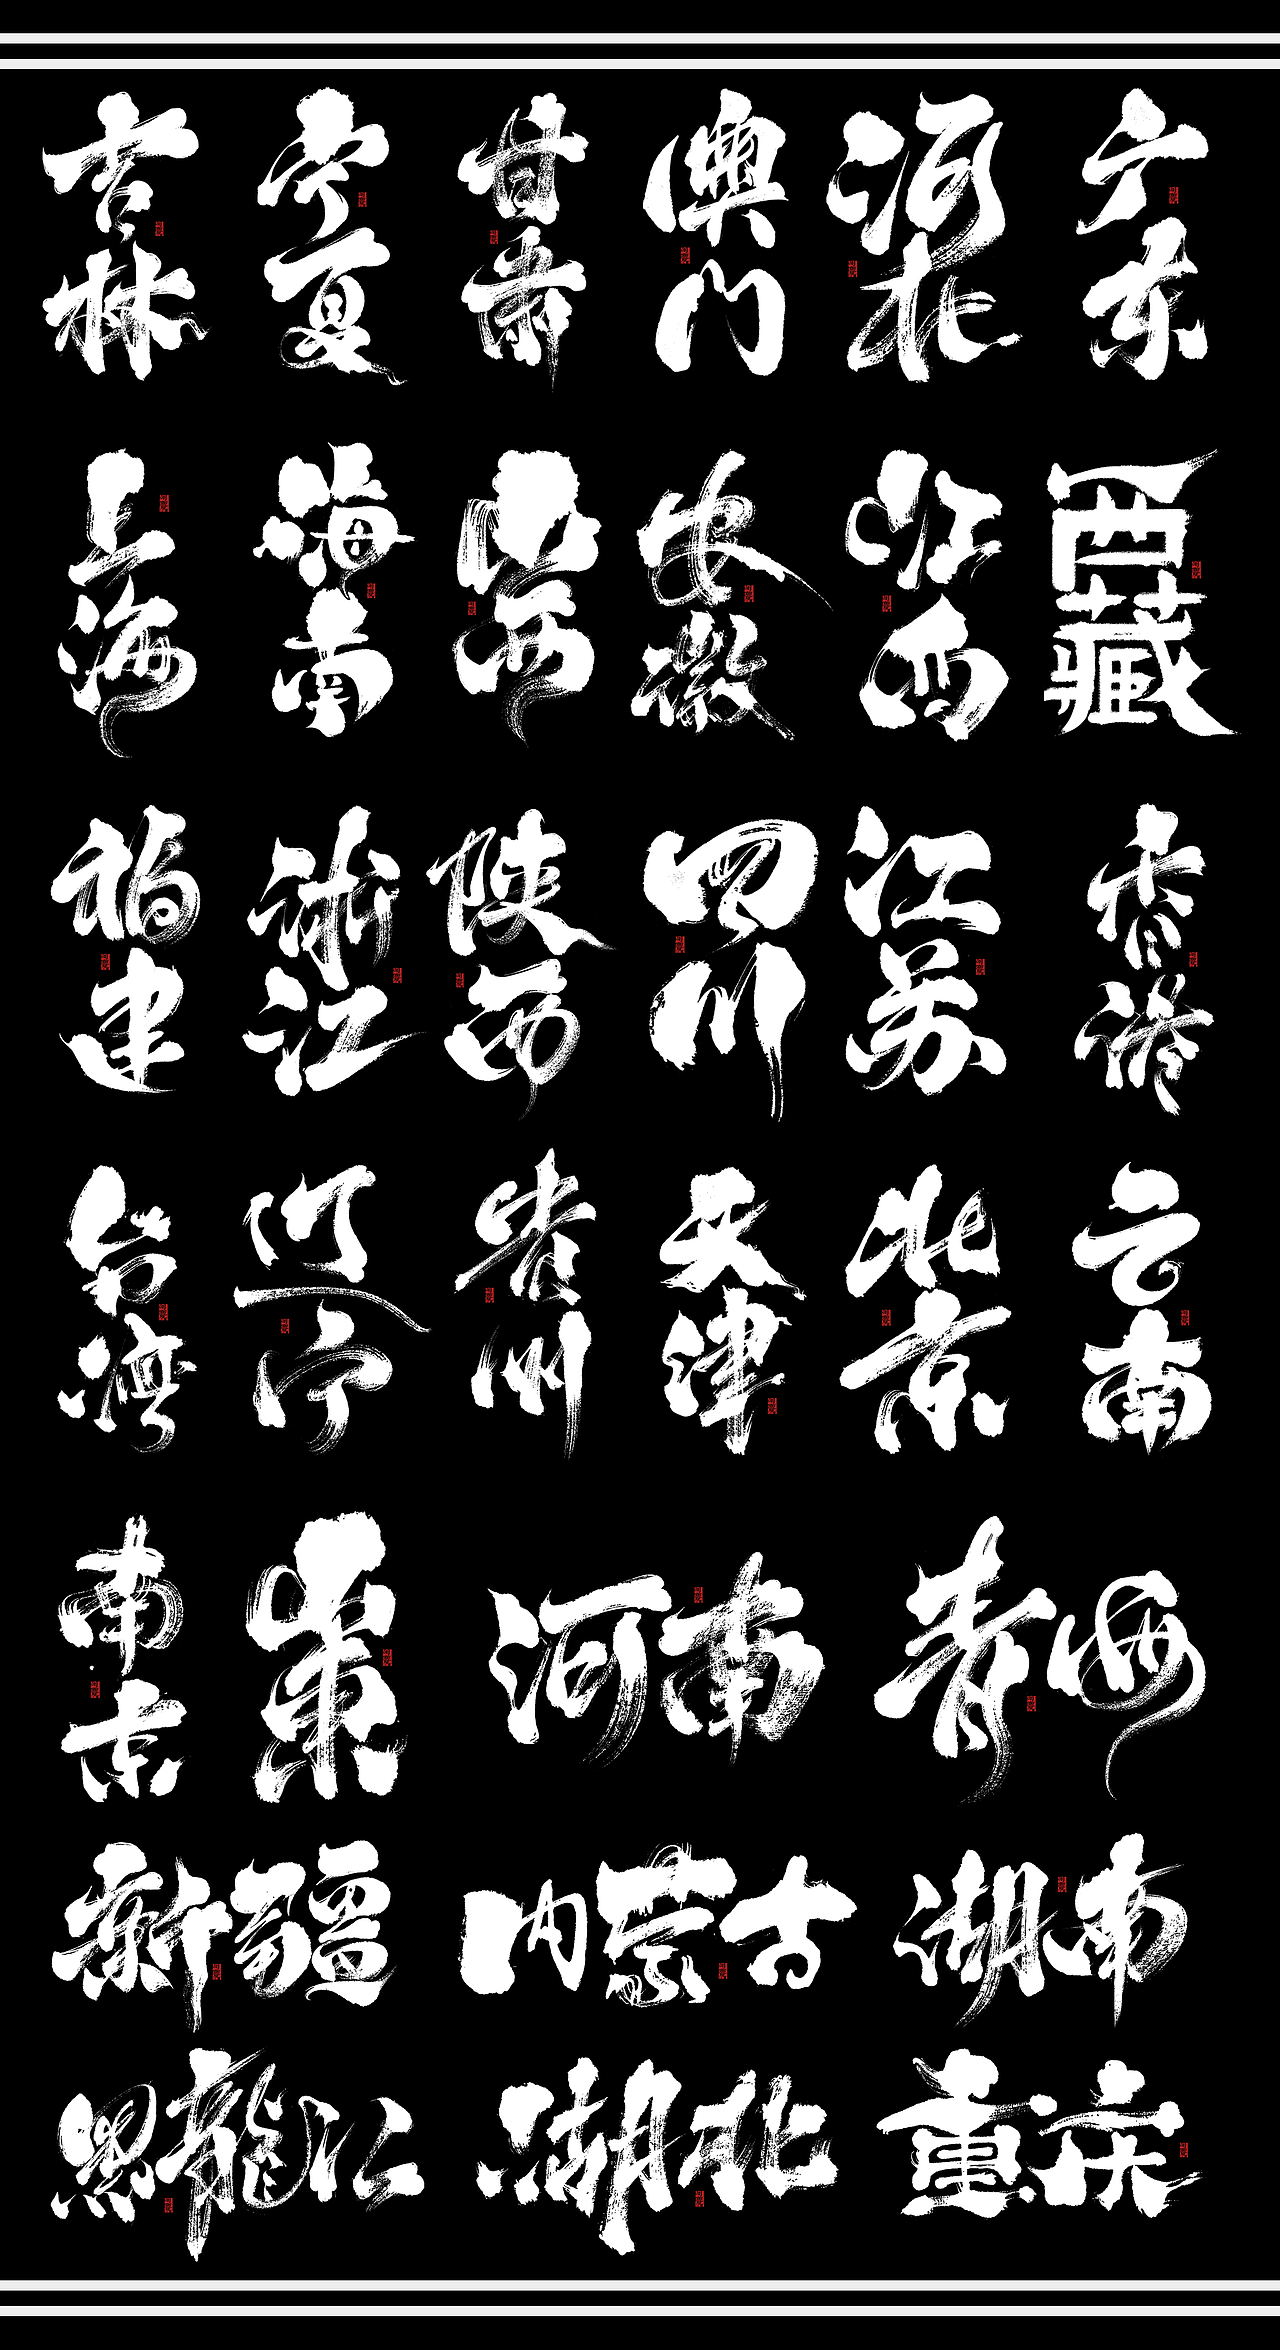 吉林
宁夏
甘肃
澳门
河北
广东
上海
海南
山西
安徽
江西
西藏
福建
浙江
陕西
四川
江苏
香港
台湾
辽宁
贵州
天津
北京
云南
南京
山東
河南
青海
新疆
内蒙古
湖南
黑龍江
湖北
重庆